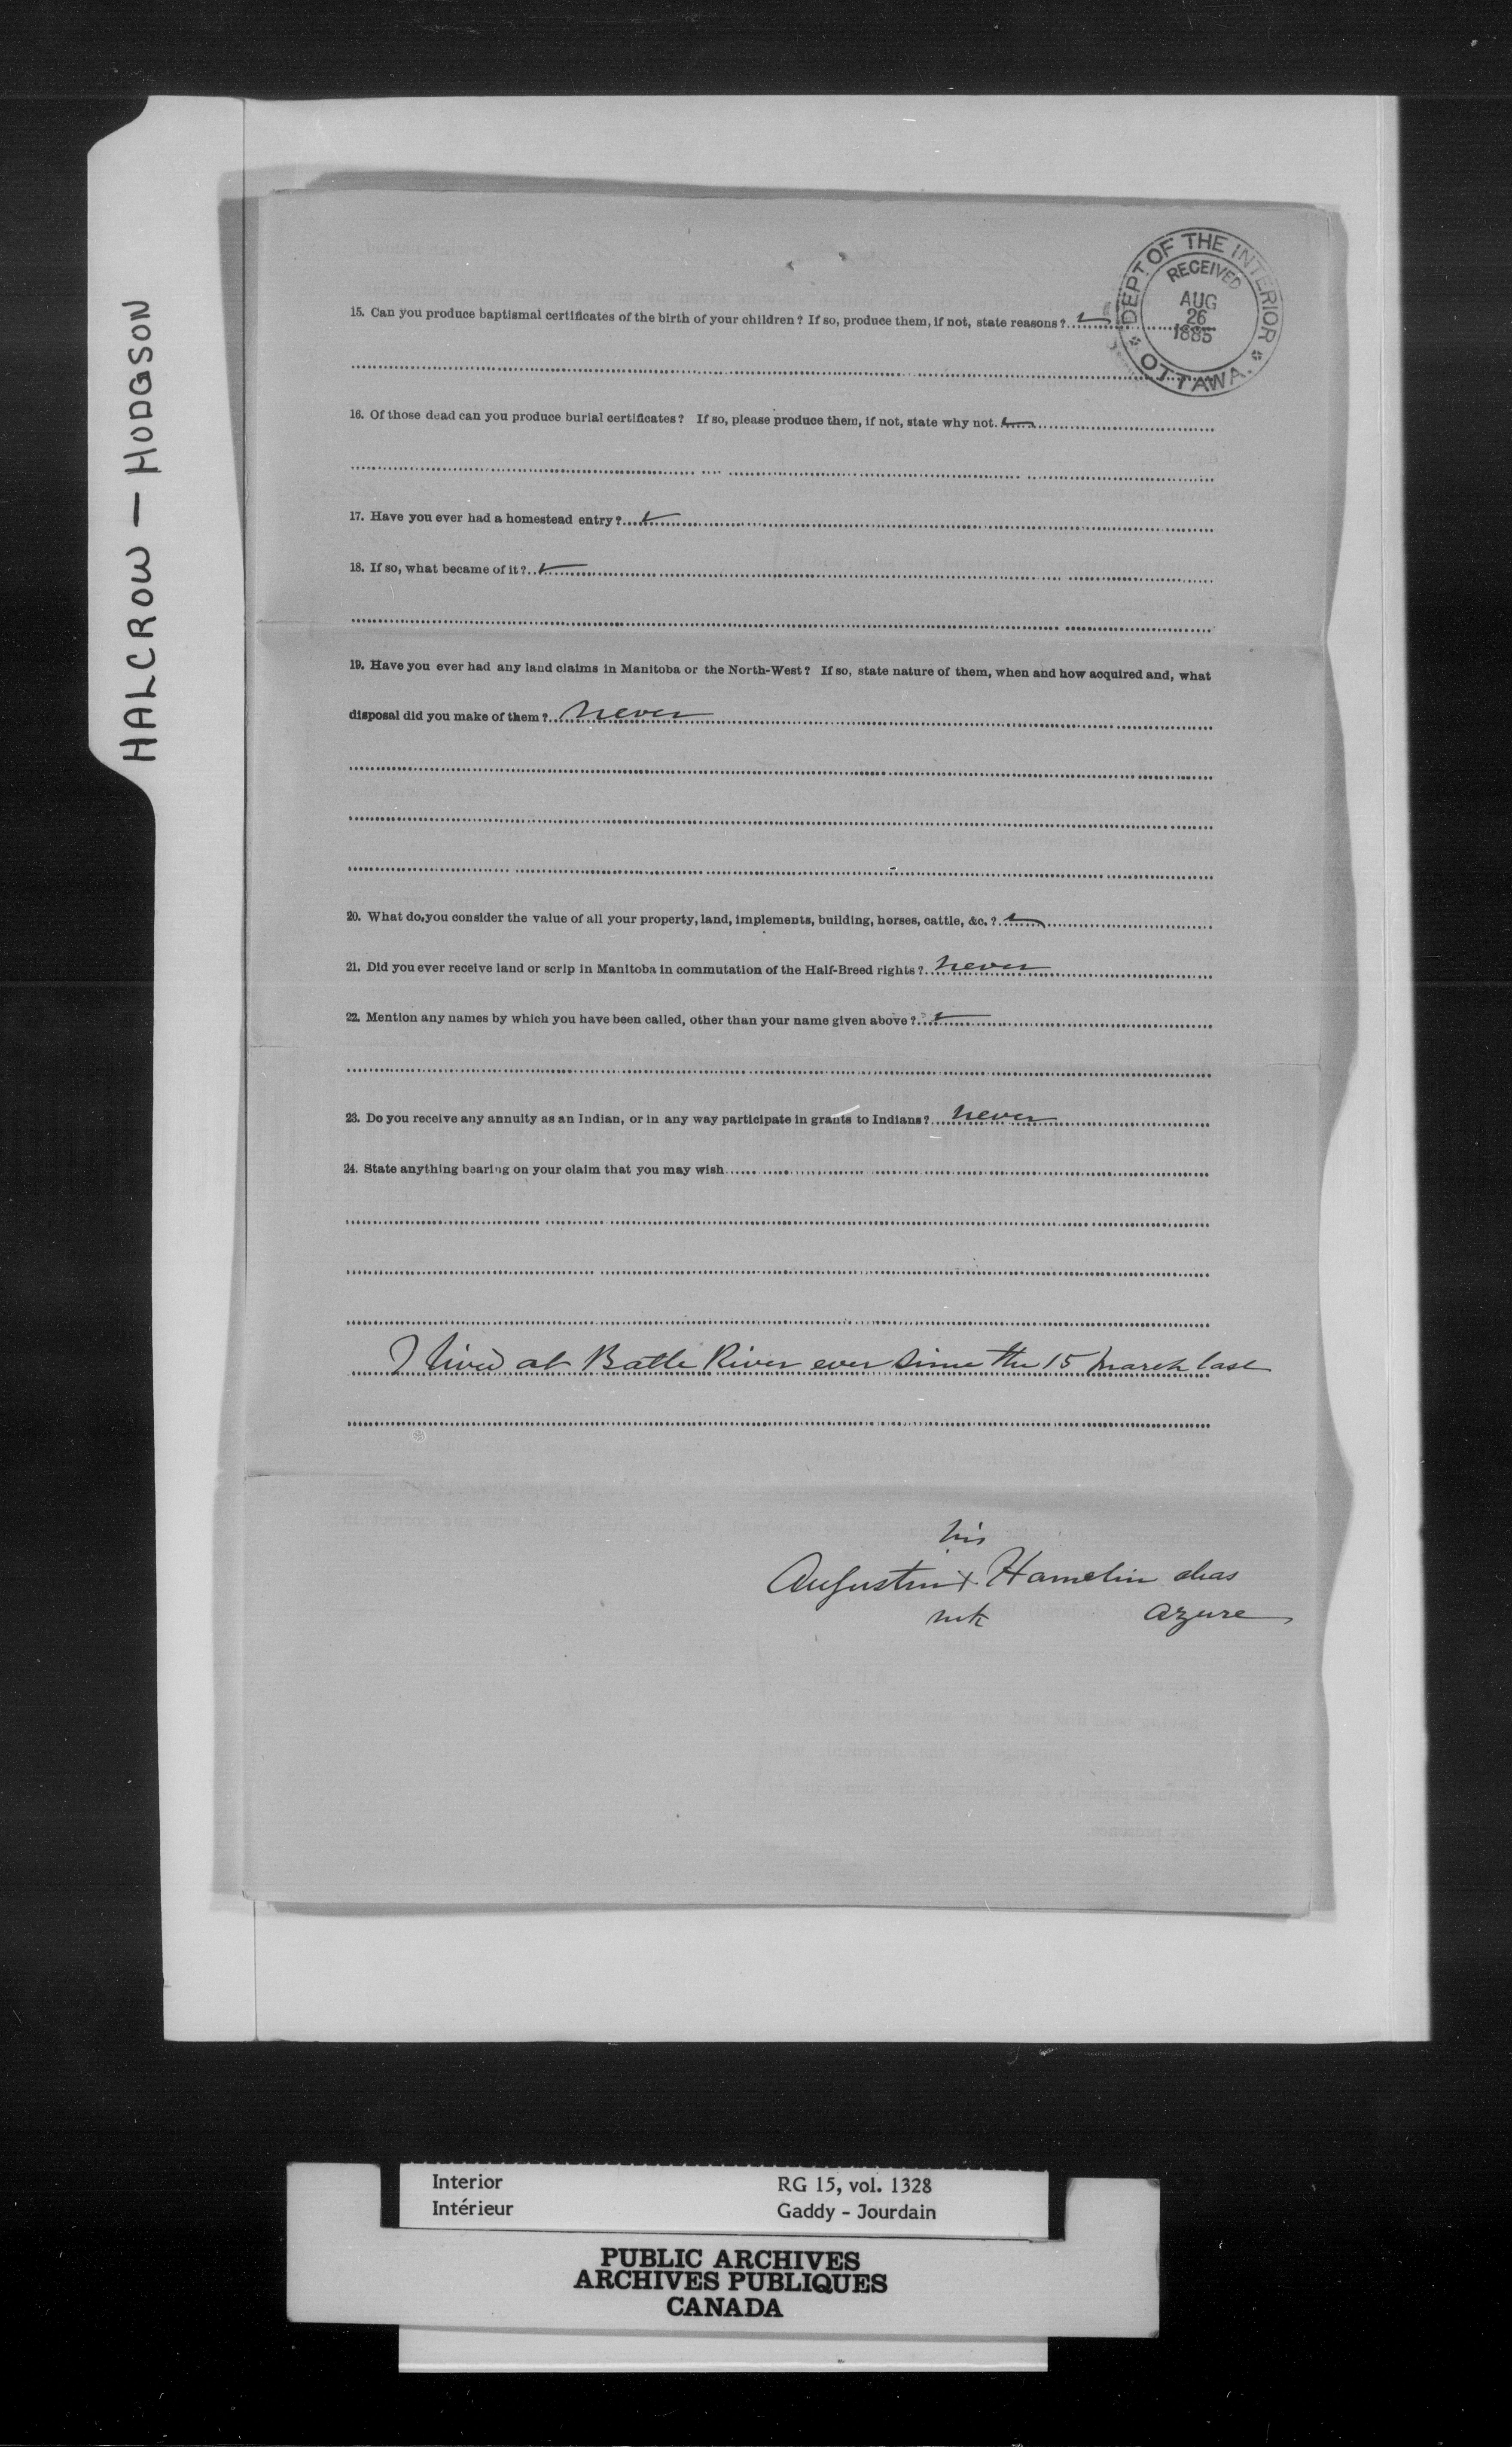 HALCROW — HODGSON
DEPT OF THE INTERIOR
RECEIVED
AUG
26
1885
OTTAWA.
15. Can you produce baptismal certificates of the birth of your children? If so, produce them, if not, state reasons?
16. Of those dead can you produce burial certificates? If so, please produce them, if not, state why not.
17. Have you ever had a homestead entry?
18. If so, what became of it?
19. Have you ever had any land claims in Manitoba or the North-West? If so, state nature of them, when and how acquired and, what
disposal did you make of them? never
20. What do you consider the value of all your property, land, implements, building, horses, cattle, &c.?
21. Did you ever receive land or scrip in Manitoba in commutation of the Half-Breed rights? never
22. Mention any names by which you have been called, other than your name given above?
23. Do you receive any annuity as an Indian, or in any way participate in grants to Indians? never
24. State anything bearing on your claim that you may wish
I lived at Batle River ever since the 15 March last
his
Augustin X Hamelin alias
mk azure
Interior RG 15, vol. 1328
Intérieur Gaddy - Jourdain
PUBLIC ARCHIVES
ARCHIVES PUBLIQUES
CANADA